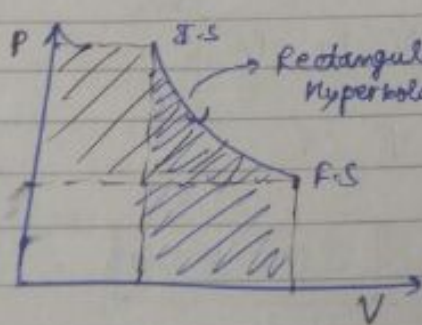 P
I.S
Rectangul
Hyperbol
F.S
V